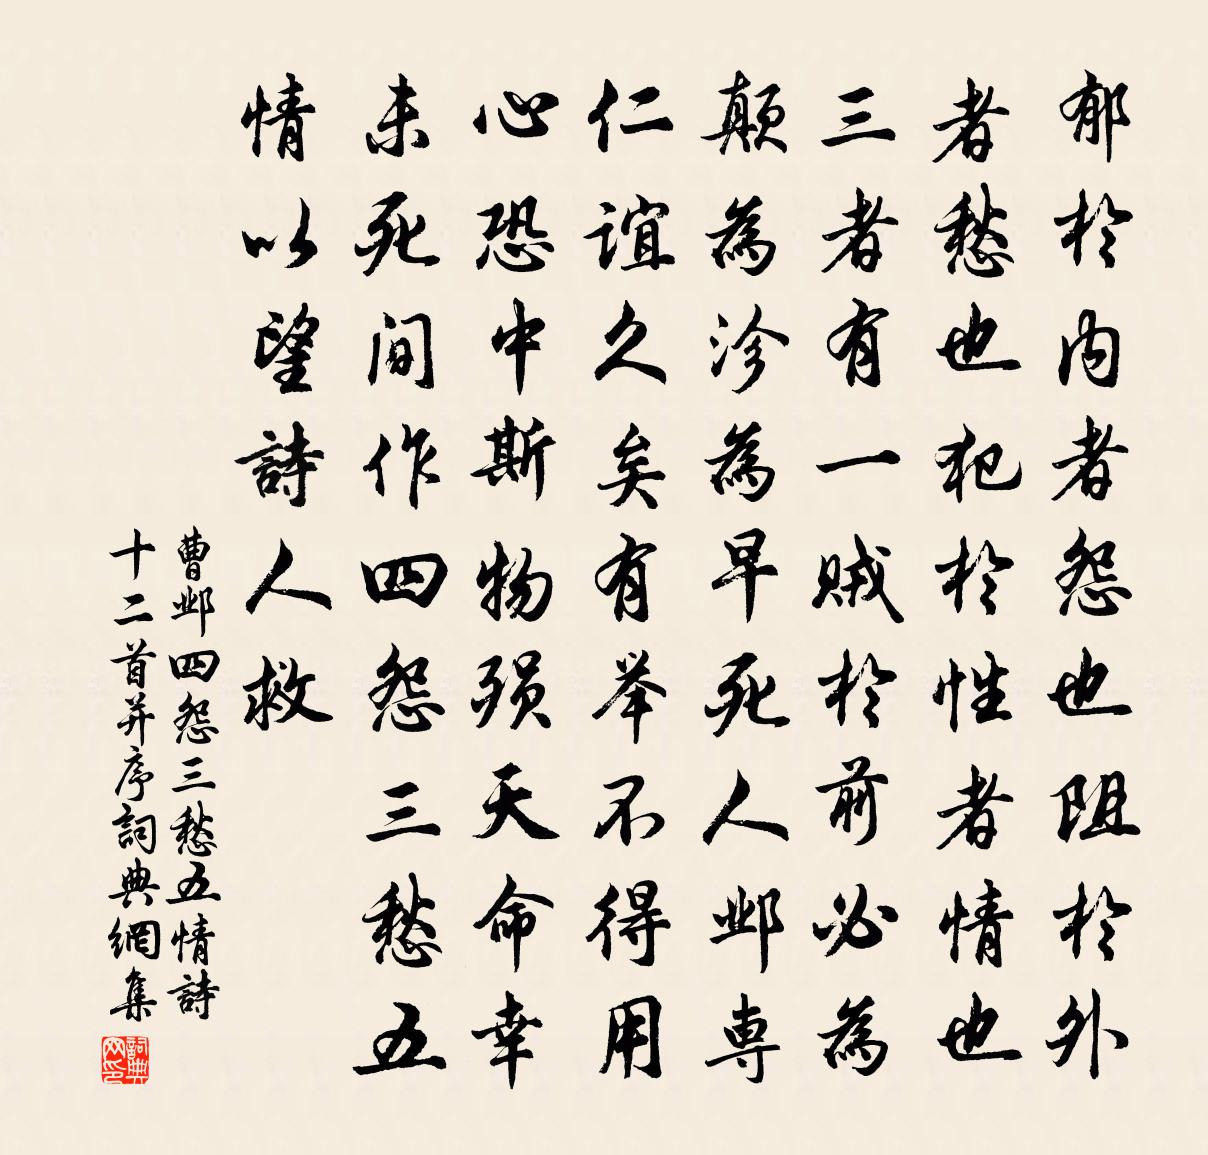 郁於内者怨也阻於外
者愁也犯於性者情也
三者有一賊於前必為
顛為沴為早死人邺専
仁谊久矣有举不得用
心恐中斯物殒天命幸
未死间作四怨三愁五
情以望詩人救
曹邺四怨三愁五情詩
十二首并序詞典網集
詞典网印